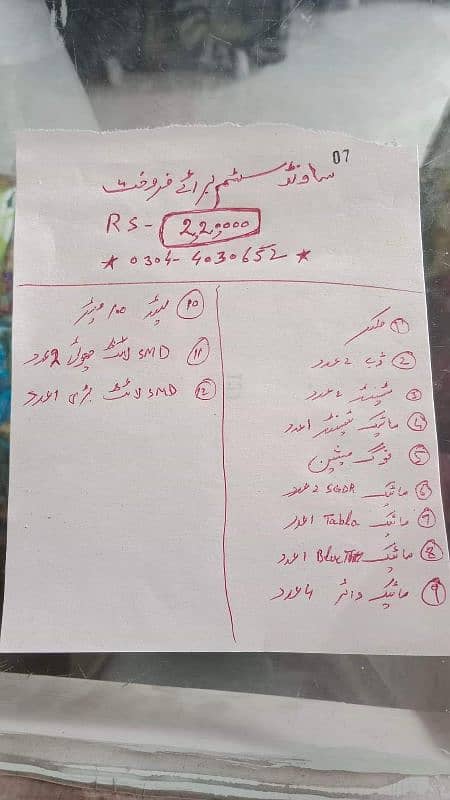 07
ساونڈ سسٹم برائے فروخت
RS- 2,20,000
★ 0304-4030652 ★
① مکسر
② ڈب 2 عدد
③ سٹینڈ 2 عدد
④ مائیک سٹینڈ 1 عدد
⑤ فوگ میشن
⑥ مائیک SGDR 2 عدد
⑦ مائیک Tabla 1 عدد
⑧ مائیک BlueTTH 1 عدد
⑨ مائیک وائر 4 عدد
⑩ لیڈ 100 میٹر
⑪ SMD لائٹ چھوٹی 2 عدد
⑫ SMD لائٹ بڑی 1 عدد